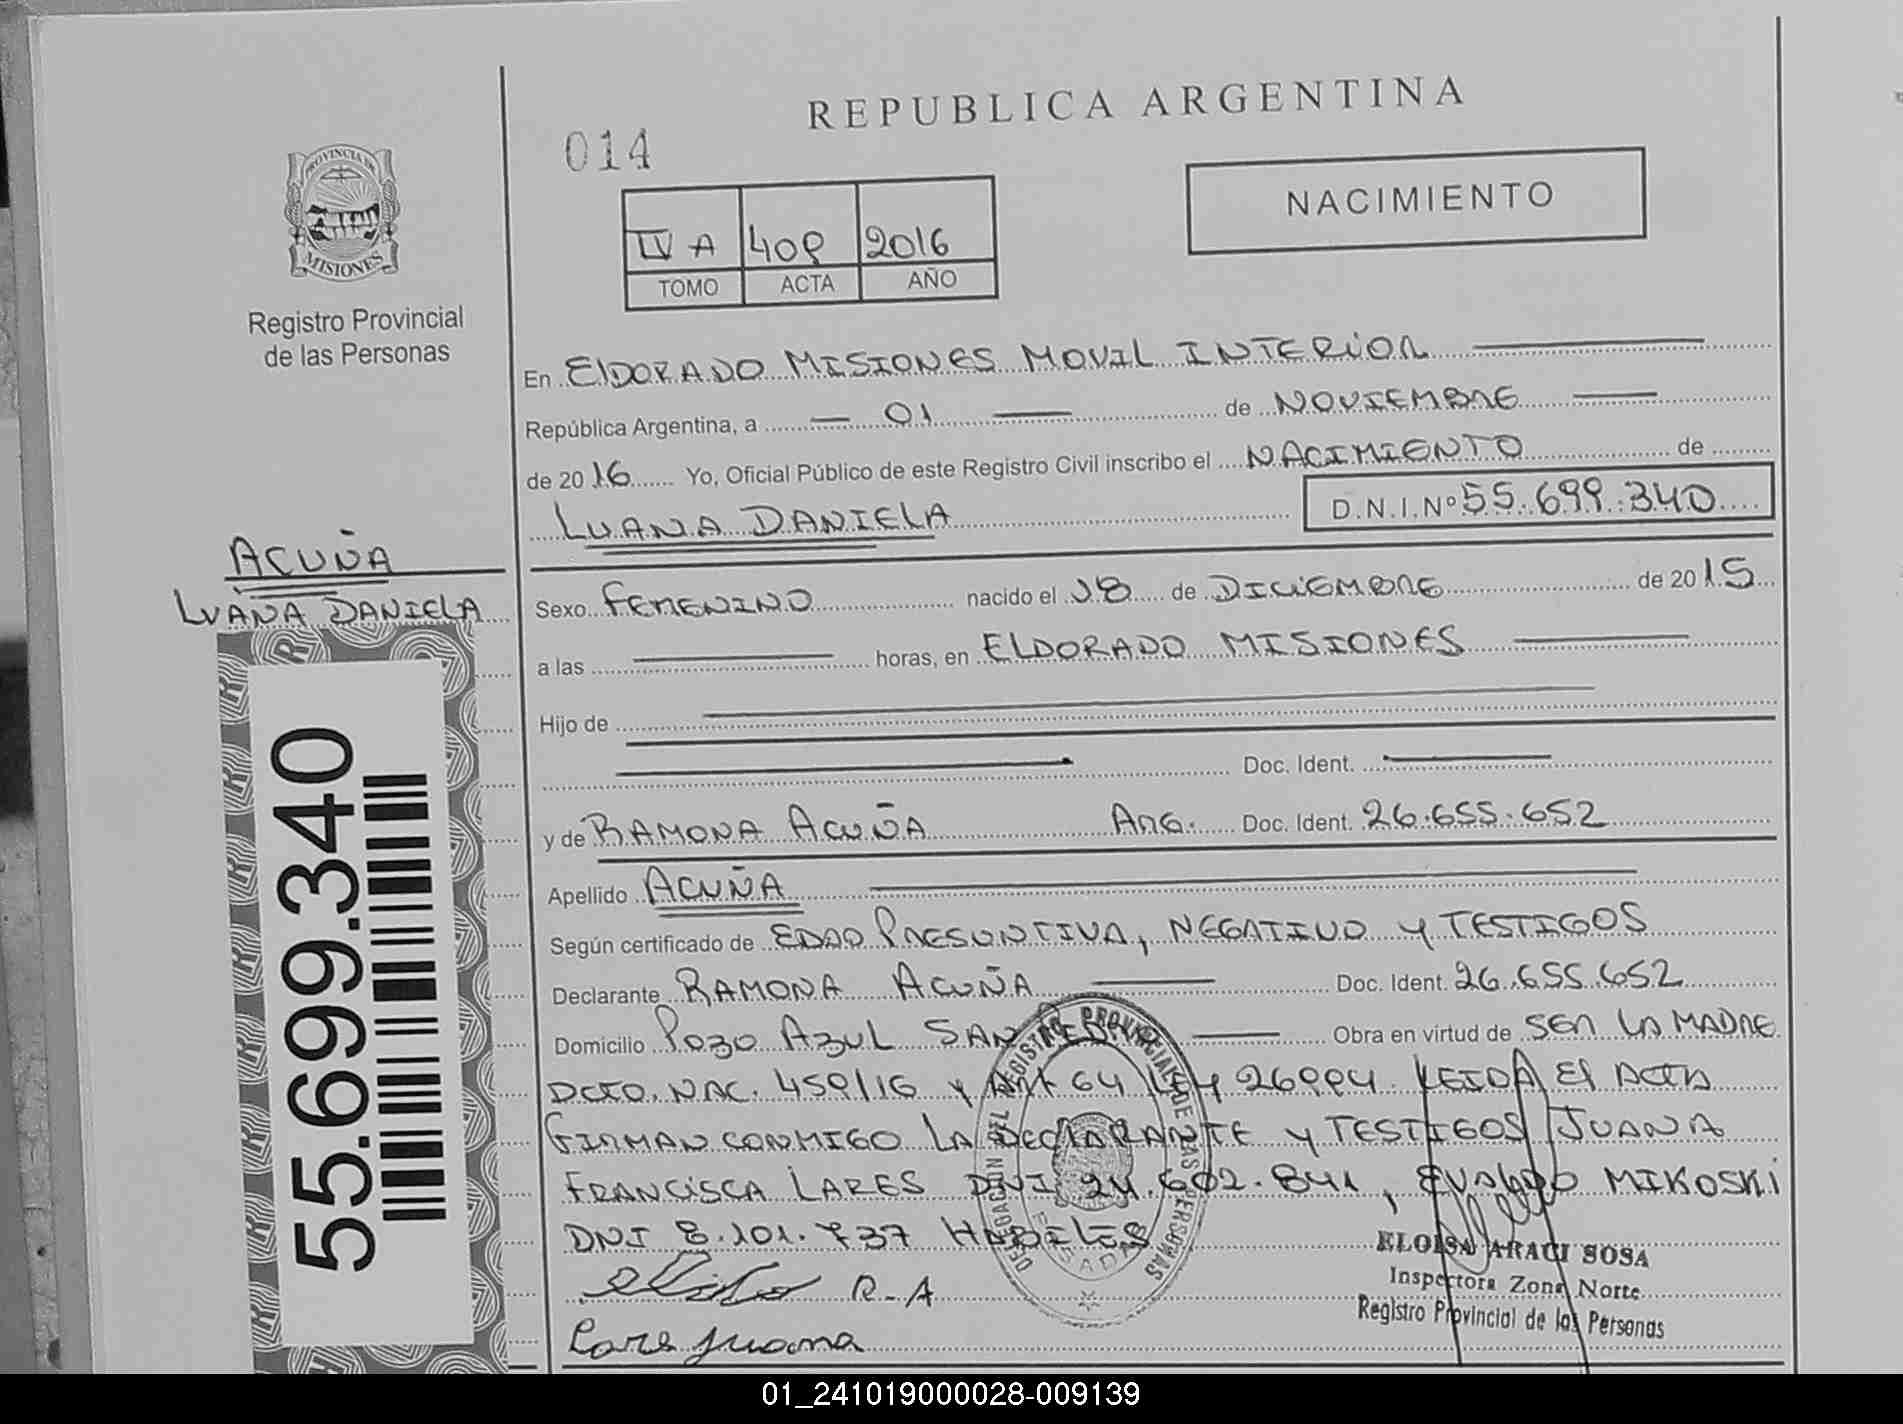 REPUBLICA ARGENTINA
014
PROVINCIA DE
MISIONES
Registro Provincial
de las Personas
IV A 409 2016
TOMO ACTA AÑO
NACIMIENTO
En ElDORADO MISIONES MOVIL INTERIOR
República Argentina, a 01 de NOVIEMBRE
de 2016 Yo, Oficial Público de este Registro Civil inscribo el NACIMIENTO de
LUANA DANIELA D.N.I.Nº 55.699.340
ACUÑA
LUANA DANIELA
Sexo FEMENINO nacido el 18 de DICIEMBRE de 2015
a las horas, en ELDORADO MISIONES
Hijo de
Doc. Ident.
y de RAMONA ACUÑA ARG. Doc. Ident. 26.655.652
Apellido ACUÑA
Según certificado de EDAD PRESUNTIVA, NEGATIVO Y TESTIGOS
Declarante RAMONA ACUÑA Doc. Ident. 26.655.652
Domicilio POZO AZUL SAN PEDRO Obra en virtud de SER LA MADRE
DCTO. NAC. 459/16 Y ART 64 LEY 26994. LEIDA El ACTA
FIRMAN CONMIGO LA DECLARANTE Y TESTIGOS JUANA
FRANCISCA LARES DNI 24.602.841, EVALDO MIKOSKI
DNI 8.101.737 HABILES
R-A
Lares Juana
REGISTRO PROVINCIAL DE LAS PERSONAS
DELEGACION DEL
ELOISA ARACI SOSA
Inspectora Zona Norte
Registro Provincial de las Personas
55.699.340
01_241019000028-009139